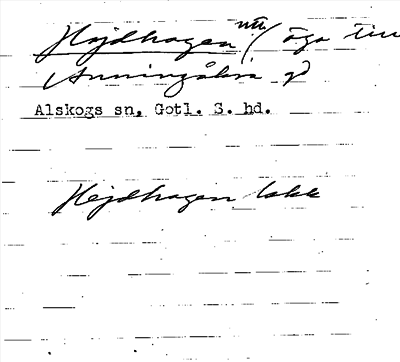 Hejdhagen nu (äga till
Anningåkra gd
Alskogs sn, Gotl. S. hd.
Hejdhagen lokk